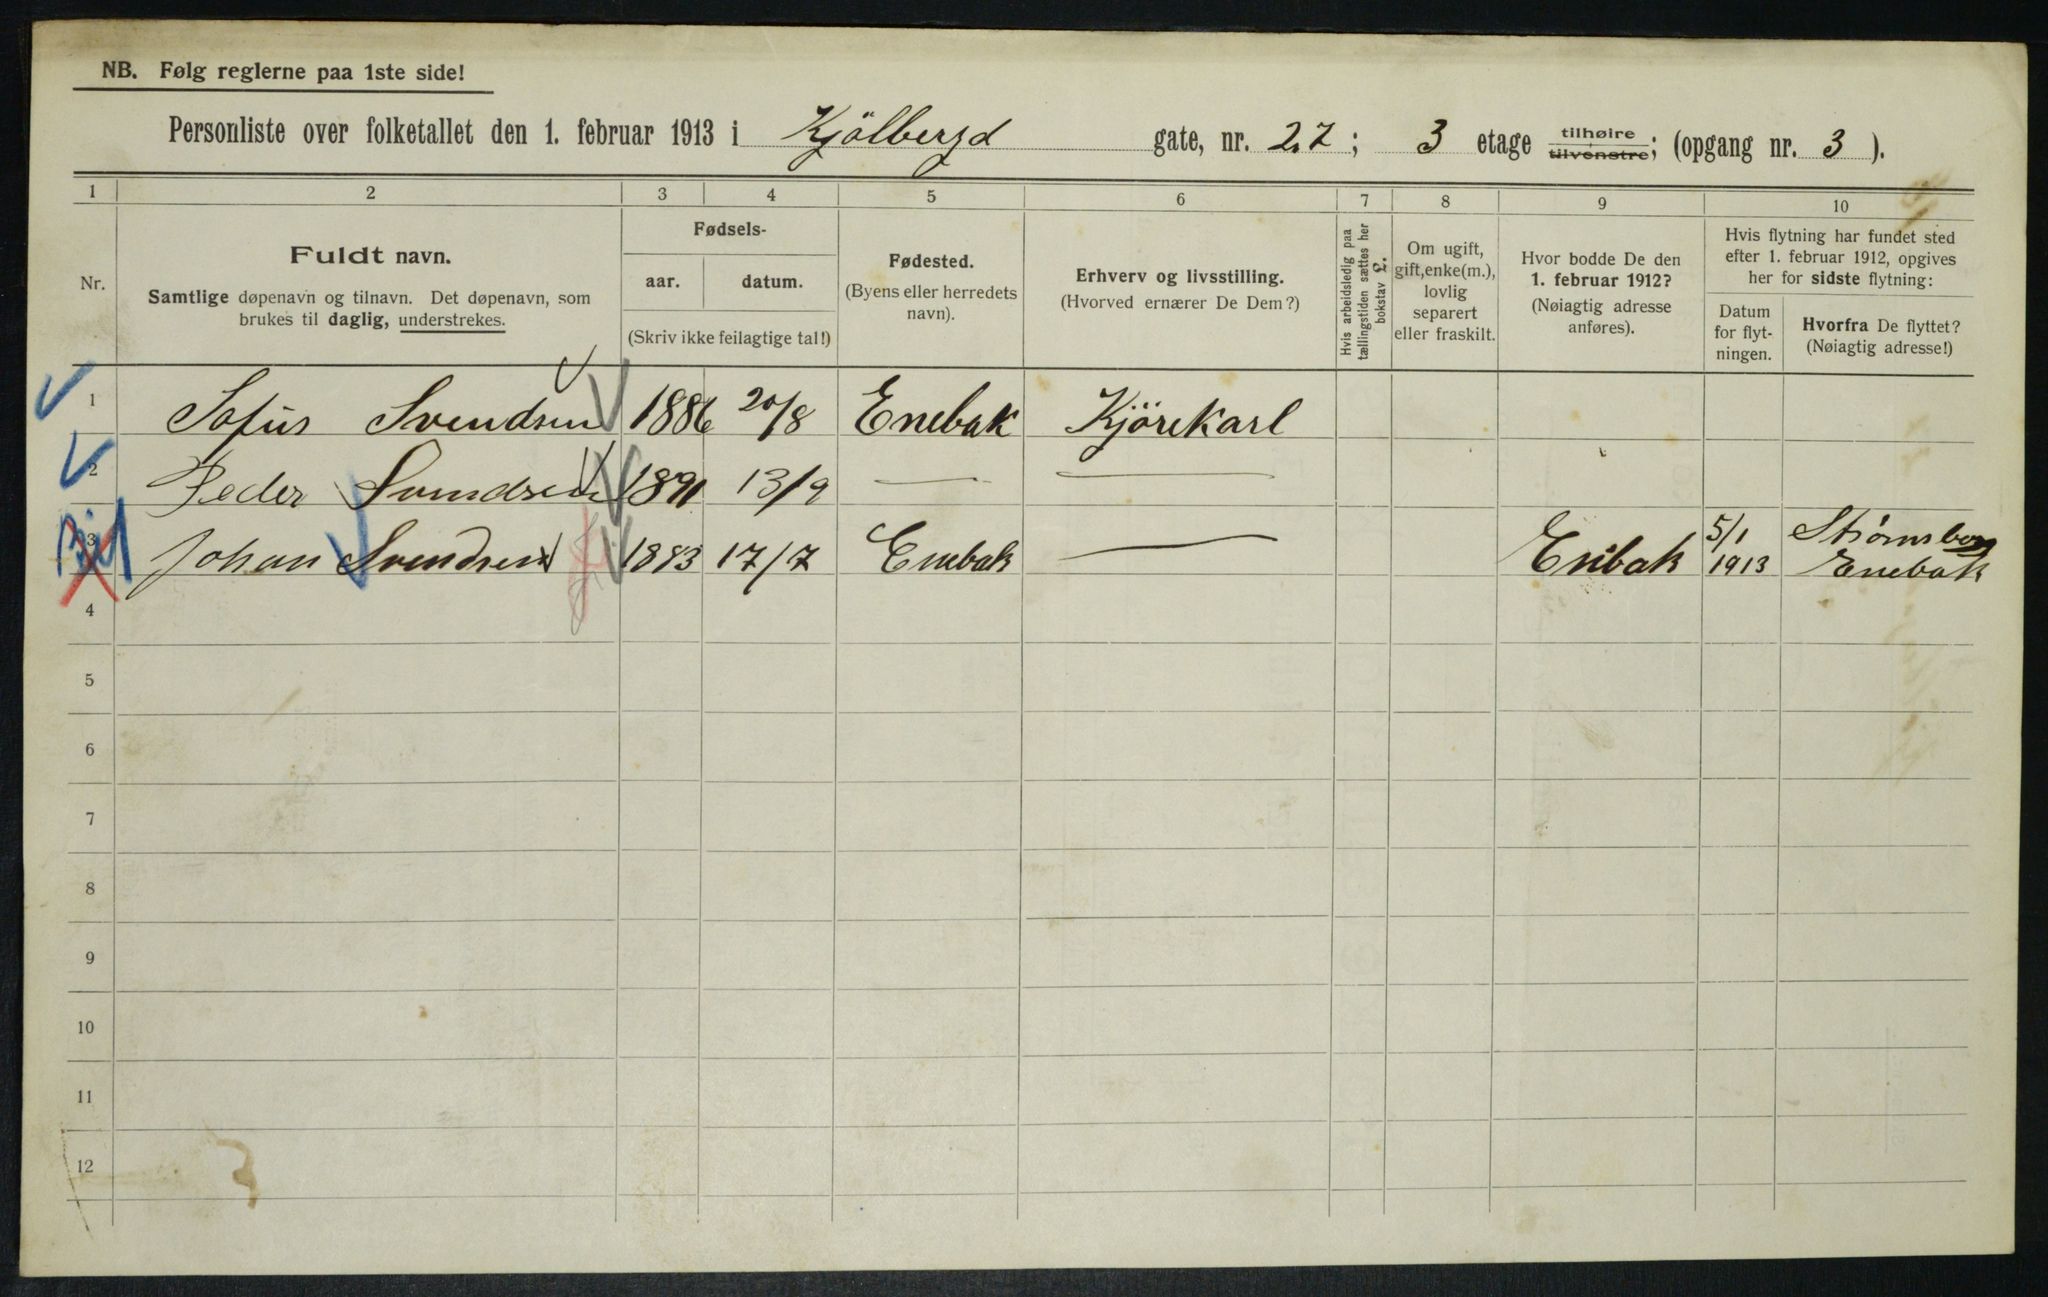 NB. Følg reglerne paa 1ste side!
Personliste over folketallet den 1. februar 1913 i Kjölbergd gate, nr. 27; 3 etage tilhøire tilvenstre; (opgang nr. 3 ).
1 2 3 4 5 6 7 8 9 10
Nr.
Fuldt navn.
Samtlige døpenavn og tilnavn. Det døpenavn, som
brukes til daglig, understrekes.
Fødsels-
aar. datum.
(Skriv ikke feilagtige tal!)
Fødested.
(Byens eller herredets
navn).
Erhverv og livsstilling.
(Hvorved ernærer De Dem?)
Hvis arbeidsledig paa
tællingstiden sættes her
bokstav L.
Om ugift,
gift, enke(m.),
lovlig
separert
eller fraskilt.
Hvor bodde De den
1. februar 1912?
(Nøiagtig adresse
anføres).
Hvis flytning har fundet sted
efter 1. februar 1912, opgives
her for sidste flytning:
Datum
for flyt-
ningen.
Hvorfra De flyttet?
(Nøiagtig adresse!)
1 Sofus Svendsen 1886 20/8 Enebak Kjörekarl
2 Peder Svendsen 1891 13/9 — —
3 Johan Svendsen 1883 17/7 Enebak — Enbak 5/1 1913 Strømsborg Enebak
4
5
6
7
8
9
10
11
12